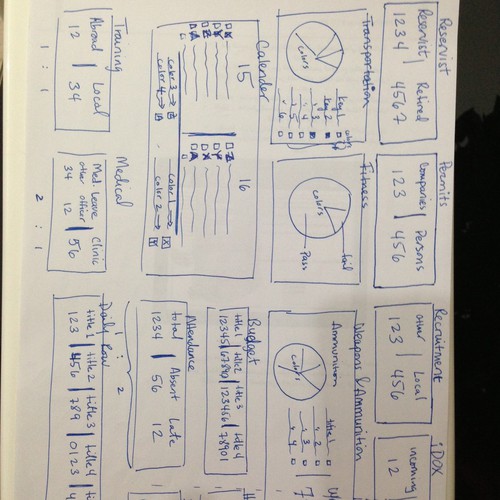 Reservist
Reservist | Retired
1234 | 4567
Permits
Companies | Persons
123 | 456
Recruitment
Other | Local
123 | 456
iDOX
incoming
12
Transportation
colors
key 1
key 2
3
4
5
6
Fitness
colors
fail
Pass
Weapons & Ammunition
Ammunition
colors
title 1
2
3
4
Calender
15
16
color 3
color 4
color 1
color 2
Budget
title 1 | title 2 | title 3 | title 4
12345 | 67890 | 123456 | 78901
Attendance
total Absent Late
1234 | 56 12
1 : 2
Training
Abroad | Local
12 | 34
1 : 1
Medical
Med. Leave | Clinic
other officer
34 12 | 56
2 : 1
Daily Row
title 1 | title 2 | title 3 | title 4
123 | 456 | 789 | 0123